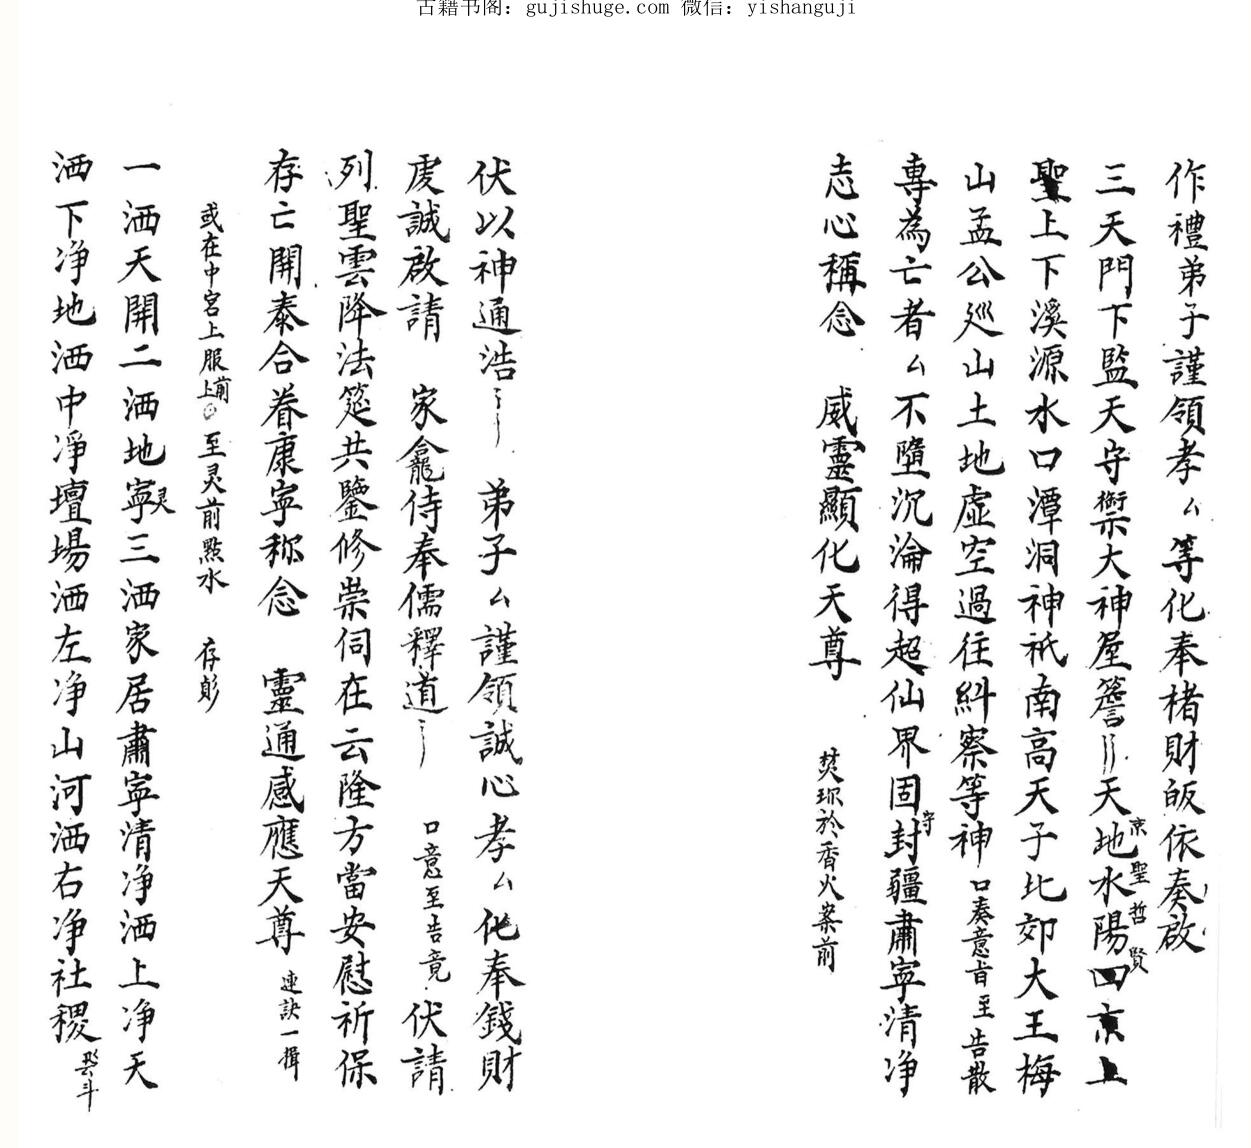 古籍书阁：gujishuge.com 微信：yishanguji
作禮弟子謹領孝ㄙ等化奉楮財皈依奏啟
三天門下監天守禦大神屋簷〻天地水陽四京上
京聖哲賢
聖上下溪源水口潭洞神祇南高天子北郊大王梅
山孟公巡山土地虛空過往糾察等神 口奏意旨至告散
專為亡者ㄙ不墮沉淪得超仙界固封疆肅寧清净
守
志心稱念 威靈顯化天尊 焚琼於香火案前
伏以神通浩〻 弟子ㄙ謹領誠心孝ㄙ化奉錢財
虔誠啟請 家龕侍奉儒釋道〻 口意至告竟 伏請
列聖雲降法筵共鑒修崇伺在云隆方當安慰祈保
存亡開泰合眷康寧称念 靈通感應天尊 連訣一揖
或在中宮上服前上至灵前點水 存彭
一洒天開二洒地寧三洒家居肅寧清净洒上净天
灵
洒下净地洒中净壇場洒左净山河洒右净社稷
斗